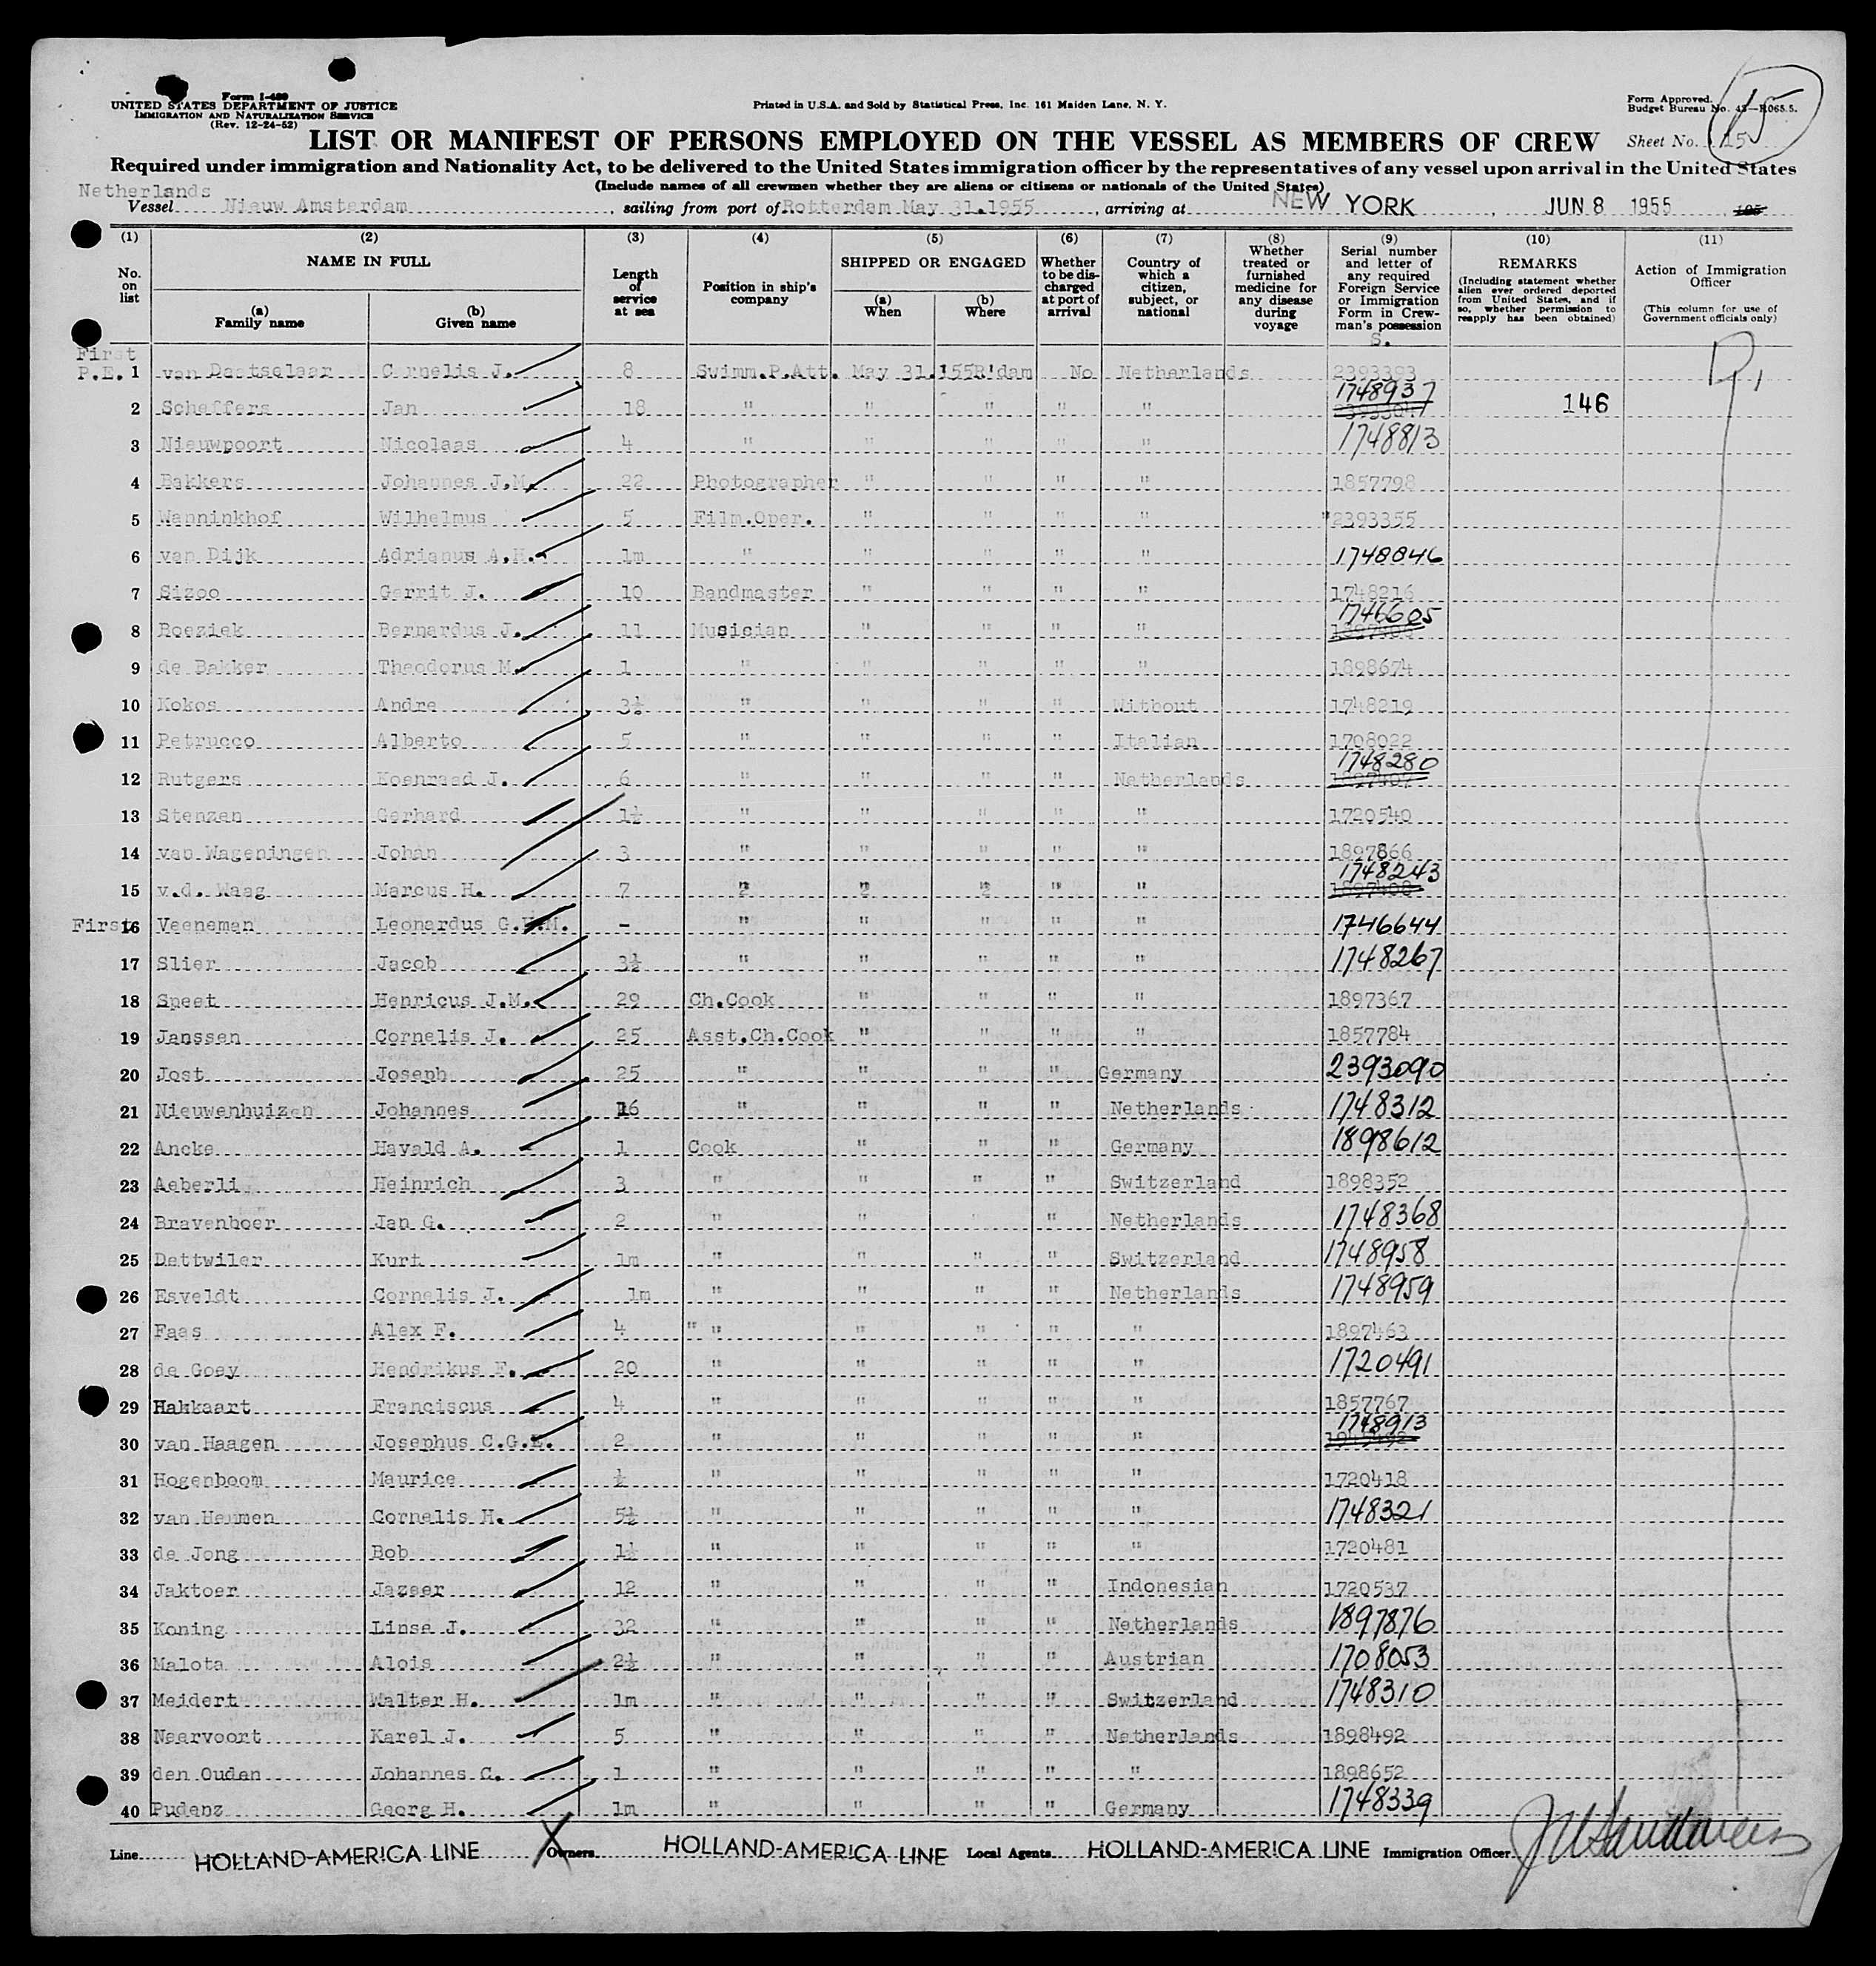 Form I-489
UNITED STATES DEPARTMENT OF JUSTICE
IMMIGRATION AND NATURALIZATION SERVICE
(Rev. 12-24-52)
Printed in U.S.A. and Sold by Statistical Press, Inc. 161 Maiden Lane, N. Y.
Form Approved.
Budget Bureau No. 43—R065.5.
15
LIST OR MANIFEST OF PERSONS EMPLOYED ON THE VESSEL AS MEMBERS OF CREW
Sheet No. 15
Required under immigration and Nationality Act, to be delivered to the United States immigration officer by the representatives of any vessel upon arrival in the United States
(Include names of all crewmen whether they are aliens or citizens or nationals of the United States)
Netherlands
Vessel Nieuw Amsterdam, sailing from port of Rotterdam May 31.1955, arriving at NEW YORK, JUN 8 1955
(1) (2) (3) (4) (5) (6) (7) (8) (9) (10) (11)
No. on list
NAME IN FULL
(a) Family name
(b) Given name
Length of service at sea
Position in ship's company
SHIPPED OR ENGAGED
(a) When
(b) Where
Whether to be discharged at port of arrival
Country of which a citizen, subject, or national
Whether treated or furnished medicine for any disease during voyage
Serial number and letter of any required Foreign Service or Immigration Form in Crewman's possession
S.
REMARKS
(Including statement whether alien ever ordered deported from United States, and if so, whether permission to reapply has been obtained)
Action of Immigration Officer
(This column for use of Government officials only)
First
P.E. 1 van Dastselaar Cornelis J. 8 Swimm.P.Att. May 31.'55 R'dam No Netherlands 2393393
2 Scheffers Jan 18 " " " " " 1748937 146
3 Nieuwpoort Nicolaas 4 " " " " " 1748813
4 Bakkers Johannes J.M. 22 Photographer " " " " 1857798
5 Wanninkhof Wilhelmus 5 Film.Oper. " " " " 2393355
6 van Dijk Adrianus A.H. 1m " " " " " 1748846
7 Sizoo Gerrit J. 10 Bandmaster " " " " 1748216
8 Boeziek Bernardus J. 11 Musician " " " " 1746605
9 de Bakker Theodorus M. 1 " " " " " 1898674
10 Kokos Andre 3½ " " " " Without 1748219
11 Petrucco Alberto 5 " " " " Italian 1708022
12 Rutgers Koenraad J. 6 " " " " Netherlands 1748280
13 Stenzen Gerhard 1½ " " " " " 1720540
14 van Wageningen Johan 3 " " " " " 1897866
15 v.d. Waag Marcus H. 7 " " " " " 1748243
First 16 Veeneman Leonardus G.H.M. - " " " " " 1746644
17 Slier Jacob 3½ " " " " " 1748267
18 Speet Henricus J.M. 29 Ch.Cook " " " " 1897367
19 Janssen Cornelis J. 25 Asst.Ch.Cook " " " " 1857784
20 Jost Joseph 25 " " " " Germany 2393090
21 Nieuwenhuizen Johannes 16 " " " " Netherlands 1748312
22 Ancke Havald A. 1 Cook " " " Germany 1898612
23 Aeberli Heinrich 3 " " " " Switzerland 1898352
24 Bravenboer Jan G. 2 " " " " Netherlands 1748368
25 Dettwiler Kurt 1m " " " " Switzerland 1748958
26 Esveldt Cornelis J. 1m " " " " Netherlands 1748959
27 Faas Alex F. 4 " " " " " " 1897463
28 de Goey Hendrikus F. 20 " " " " " 1720491
29 Hakkaart Franciscus 4 " " " " " 1857767
30 van Haagen Josephus C.G.L. 2 " " " " " 1748913
31 Hogenboom Maurice ½ " " " " " 1720418
32 van Heumen Cornelis H. 5½ " " " " " 1748321
33 de Jong Bob 1½ " " " " " 1720481
34 Jaktoer Jazeer 12 " " " " Indonesian 1720537
35 Koning Linse J. 32 " " " " Netherlands 1897876
36 Malota Alois 2½ " " " " Austrian 1708053
37 Meidert Walter H. 1m " " " " Switzerland 1748310
38 Neervoort Karel J. 5 " " " " Netherlands 1898492
39 den Ouden Johannes C. 1 " " " " " 1898652
40 Pudenz Georg H. 1m " " " " Germany 1748339
Line HOLLAND-AMERICA LINE Owners HOLLAND-AMERICA LINE Local Agents HOLLAND-AMERICA LINE Immigration Officer